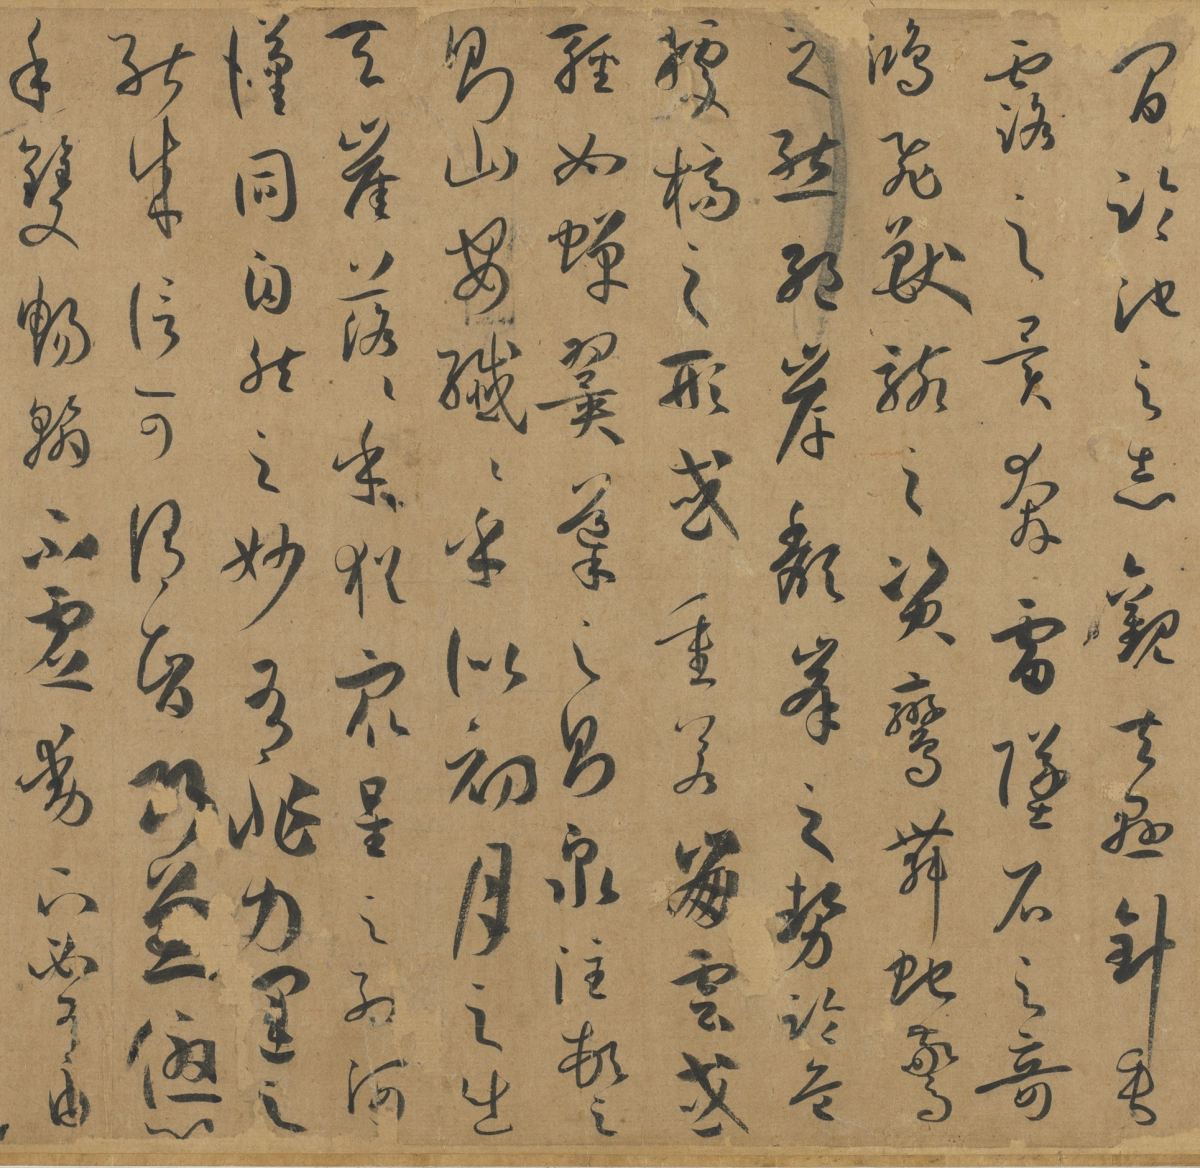 間臨池之志觀夫懸針垂
露之異奔雷墜石之奇
鴻飛獸駭之資鸞舞蛇驚
之態絕岸頹峯之勢臨危
據槁之形或重若崩雲或
輕如蟬翼導之則泉注頓之
則山安纖〻乎似初月之出
天崖落〻乎猶衆星之列河
漢同自然之妙有非力運之
能成信可謂智巧兼優心
手雙暢翰不虛動下必有由